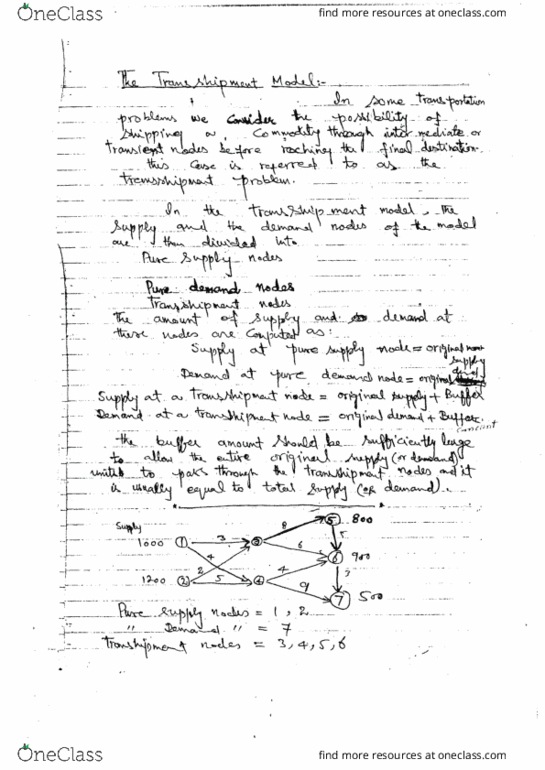 OneClass
find more resources at oneclass.com
The Transhipment Model:-
In some transportation
problems we consider the possibility of
shipping a commodity through intermediate or
transient nodes before reaching the final destination.
this case is referred to as the
transhipment problem.
In the transhipment model, the
supply and the demand nodes of the model
are then divided into
Pure supply nodes
Pure demand nodes
Transhipment nodes
The amount of supply and demand at
these nodes are computed as:
Supply at pure supply node = original
supply
Demand at pure demand node = original
Supply at a transhipment node = original supply + Buffer
Demand at a transhipment node = original demand + Buffer
amount
the buffer amount should be sufficiently large
to allow the entire original supply (or demand)
units to pass through the transhipment nodes and it
is usually equal to total supply (or demand).
Supply
8 5 800
1000 1 3 3 5
4 6 6 900
2 4
1200 2 5 4 9
7 500
Pure supply nodes = 1, 2
" Demand " = 7
Transhipment nodes = 3, 4, 5, 6
OneClass
find more resources at oneclass.com